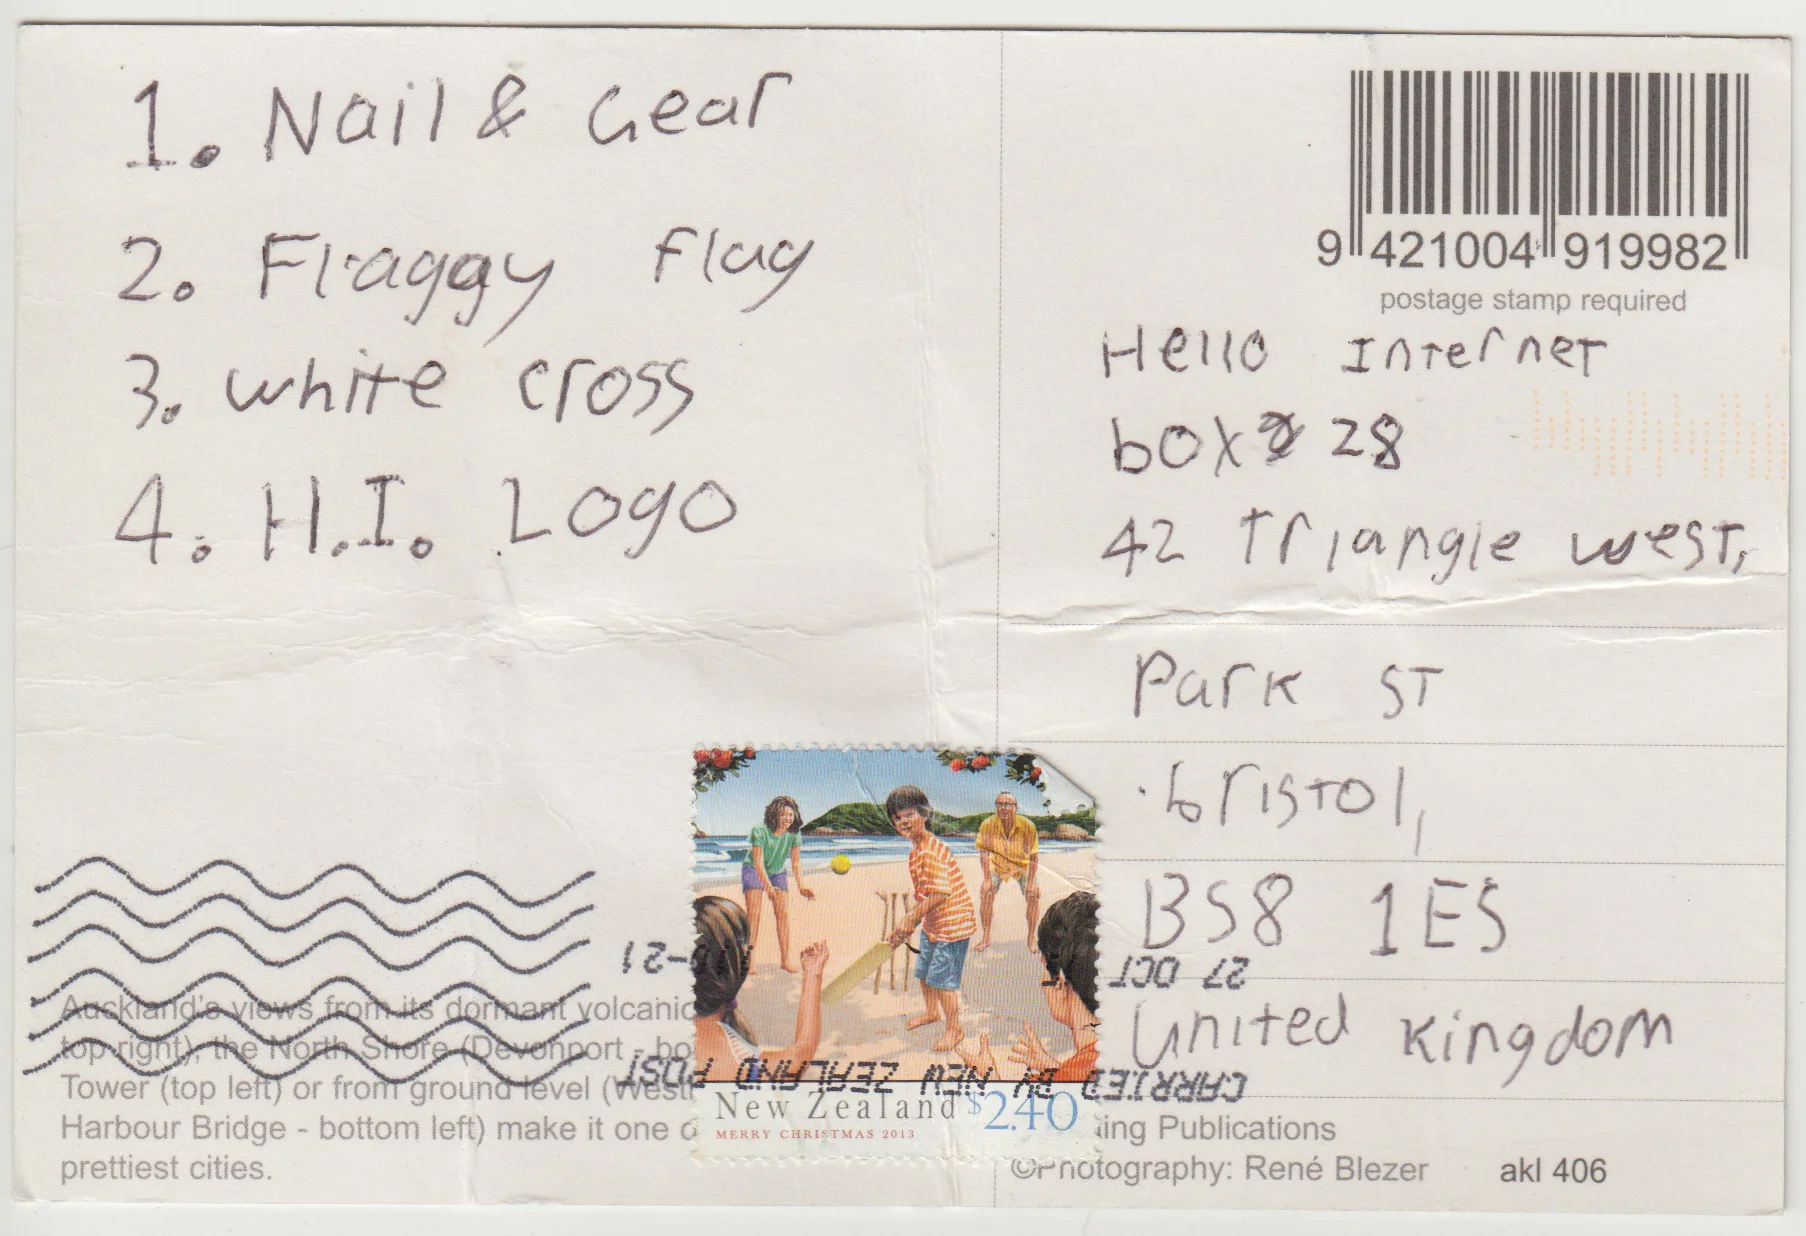 1. Nail & Gear
2. Flaggy Flag
3. white cross
4. H.I. Logo
9 421004 919982
postage stamp required
Hello Internet
box 28
42 Triangle west,
Park ST
bristol,
BS8 1ES
United Kingdom
27 OCT
-21
CARRIED BY NEW ZEALAND POST
New Zealand $2.40
MERRY CHRISTMAS 2013
Auckland's views from its dormant volcanic
top right), the North Shore (Devonport - bo
Tower (top left) or from ground level (West
Harbour Bridge - bottom left) make it one o
prettiest cities.
ing Publications
©Photography: René Blezer akl 406